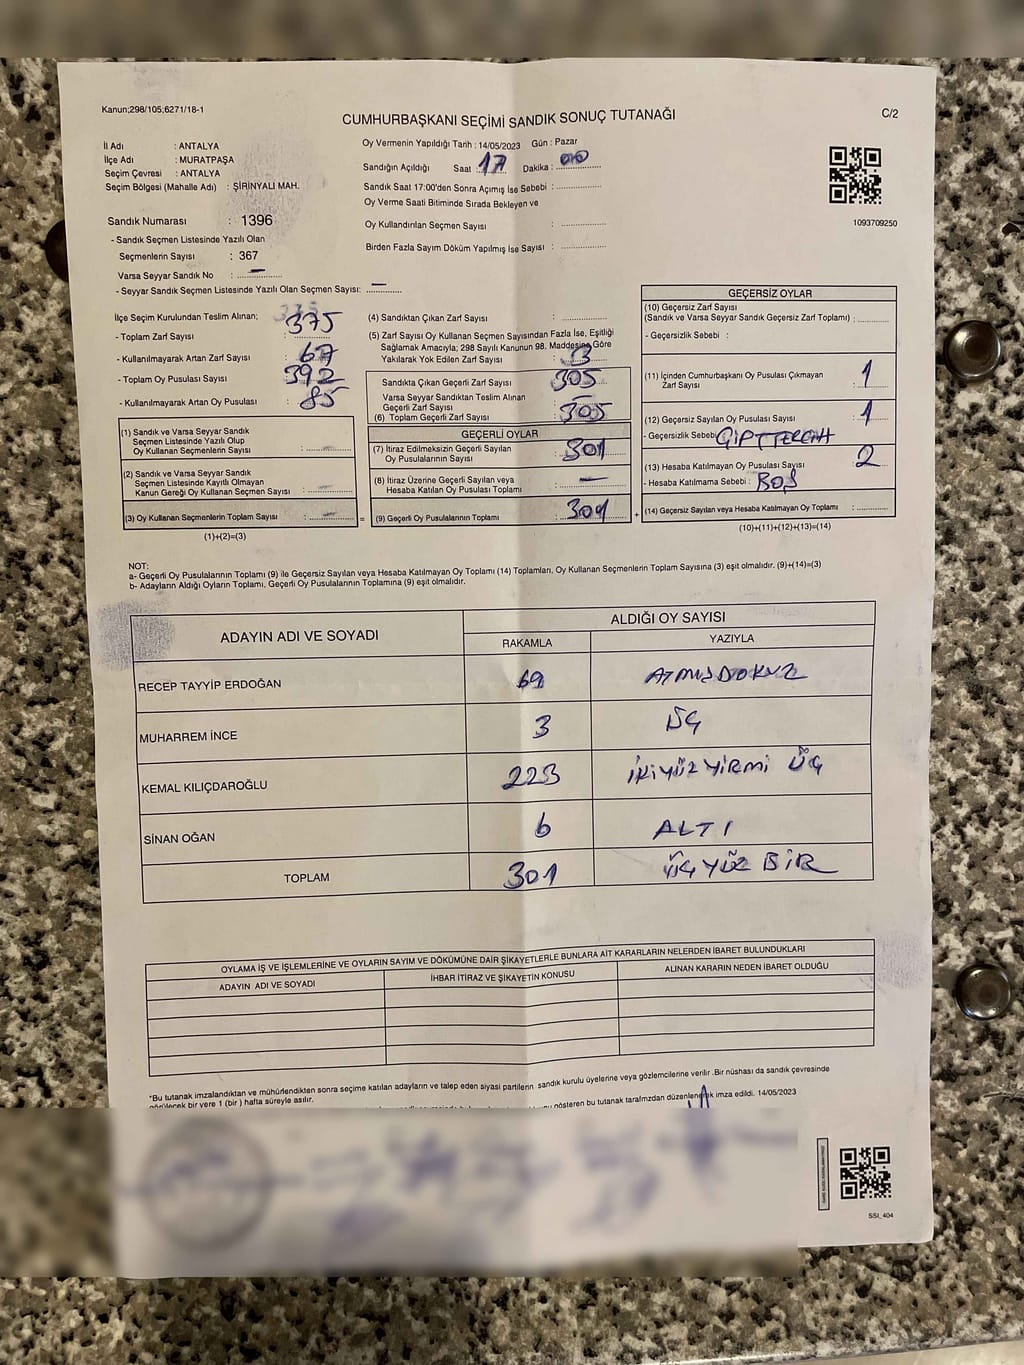 Kanun;298/105,6271/18-1
CUMHURBAŞKANI SEÇİMİ SANDIK SONUÇ TUTANAĞI
C/2
İl Adı : ANTALYA
İlçe Adı : MURATPAŞA
Seçim Çevresi : ANTALYA
Seçim Bölgesi (Mahalle Adı) : ŞİRİNYALI MAH.
Oy Vermenin Yapıldığı Tarih : 14/05/2023 Gün : Pazar
Sandığın Açıldığı Saat 17 Dakika : 00
Sandık Saat 17:00'den Sonra Açımış İse Sebebi :
Oy Verme Saati Bitiminde Sırada Bekleyen ve
Oy Kullandırılan Seçmen Sayısı :
Birden Fazla Sayım Döküm Yapılmış İse Sayısı :
1093709250
Sandık Numarası : 1396
- Sandık Seçmen Listesinde Yazılı Olan
Seçmenlerin Sayısı : 367
Varsa Seyyar Sandık No : —
- Seyyar Sandık Seçmen Listesinde Yazılı Olan Seçmen Sayısı: —
İlçe Seçim Kurulundan Teslim Alınan;
- Toplam Zarf Sayısı : 375
- Kullanılmayarak Artan Zarf Sayısı : 67
- Toplam Oy Pusulası Sayısı : 392
- Kullanılmayarak Artan Oy Pusulası : 85
(1) Sandık ve Varsa Seyyar Sandık
Seçmen Listesinde Yazılı Olup
Oy Kullanan Seçmenlerin Sayısı :
(2) Sandık ve Varsa Seyyar Sandık
Seçmen Listesinde Kayıtlı Olmayan
Kanun Gereği Oy Kullanan Seçmen Sayısı :
(3) Oy Kullanan Seçmenlerin Toplam Sayısı :
(1)+(2)=(3)
(4) Sandıktan Çıkan Zarf Sayısı :
(5) Zarf Sayısı Oy Kullanan Seçmen Sayısından Fazla İse, Eşitliği
Sağlamak Amacıyla; 298 Sayılı Kanunun 98. Maddesine Göre
Yakılarak Yok Edilen Zarf Sayısı : 3
Sandıkta Çıkan Geçerli Zarf Sayısı 305
Varsa Seyyar Sandıktan Teslim Alınan
Geçerli Zarf Sayısı : —
(6) Toplam Geçerli Zarf Sayısı : 305
GEÇERLİ OYLAR
(7) İtiraz Edilmeksizin Geçerli Sayılan
Oy Pusulalarının Sayısı : 301
(8) İtiraz Üzerine Geçerli Sayılan veya
Hesaba Katılan Oy Pusulası Toplamı : —
= (9) Geçerli Oy Pusulalarının Toplamı : 301 +
GEÇERSİZ OYLAR
(10) Geçersiz Zarf Sayısı
(Sandık ve Varsa Seyyar Sandık Geçersiz Zarf Toplamı) :
- Geçersizlik Sebebi :
(11) İçinden Cumhurbaşkanı Oy Pusulası Çıkmayan
Zarf Sayısı : 1
(12) Geçersiz Sayılan Oy Pusulası Sayısı : 1
- Geçersizlik Sebebi ÇİFT TERCİH
(13) Hesaba Katılmayan Oy Pusulası Sayısı : 2
- Hesaba Katılmama Sebebi : BOŞ
(14) Geçersiz Sayılan veya Hesaba Katılmayan Oy Toplamı :
(10)+(11)+(12)+(13)=(14)
NOT:
a- Geçerli Oy Pusulalarının Toplamı (9) ile Geçersiz Sayılan veya Hesaba Katılmayan Oy Toplamı (14) Toplamları, Oy Kullanan Seçmenlerin Toplam Sayısına (3) eşit olmalıdır. (9)+(14)=(3)
b- Adayların Aldığı Oyların Toplamı, Geçerli Oy Pusulalarının Toplamına (9) eşit olmalıdır.
ADAYIN ADI VE SOYADI
ALDIĞI OY SAYISI
RAKAMLA YAZIYLA
RECEP TAYYİP ERDOĞAN 69 ATMIŞDOKUZ
MUHARREM İNCE 3 ÜÇ
KEMAL KILIÇDAROĞLU 223 İKİYÜZ YİRMİ ÜÇ
SİNAN OĞAN 6 ALTI
TOPLAM 301 ÜÇ YÜZ BİR
OYLAMA İŞ VE İŞLEMLERİNE VE OYLARIN SAYIM VE DÖKÜMÜNE DAİR ŞİKAYETLERLE BUNLARA AİT KARARLARIN NELERDEN İBARET BULUNDUKLARI
ADAYIN ADI VE SOYADI İHBAR İTİRAZ VE ŞİKAYETİN KONUSU ALINAN KARARIN NEDEN İBARET OLDUĞU
*Bu tutanak imzalandıktan ve mühürlendikten sonra seçime katılan adayların ve talep eden siyasi partilerin sandık kurulu üyelerine veya gözlemcilerine verilir .Bir nüshası da sandık çevresinde
görülecek bir yere 1 (bir ) hafta süreyle asılır.
gösteren bu tutanak tarafımızdan düzenlenerek imza edildi. 14/05/2023
SSI_404